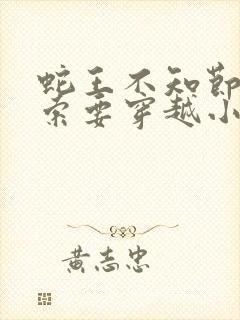 蛇王不知节
索要穿越小
黄志忠